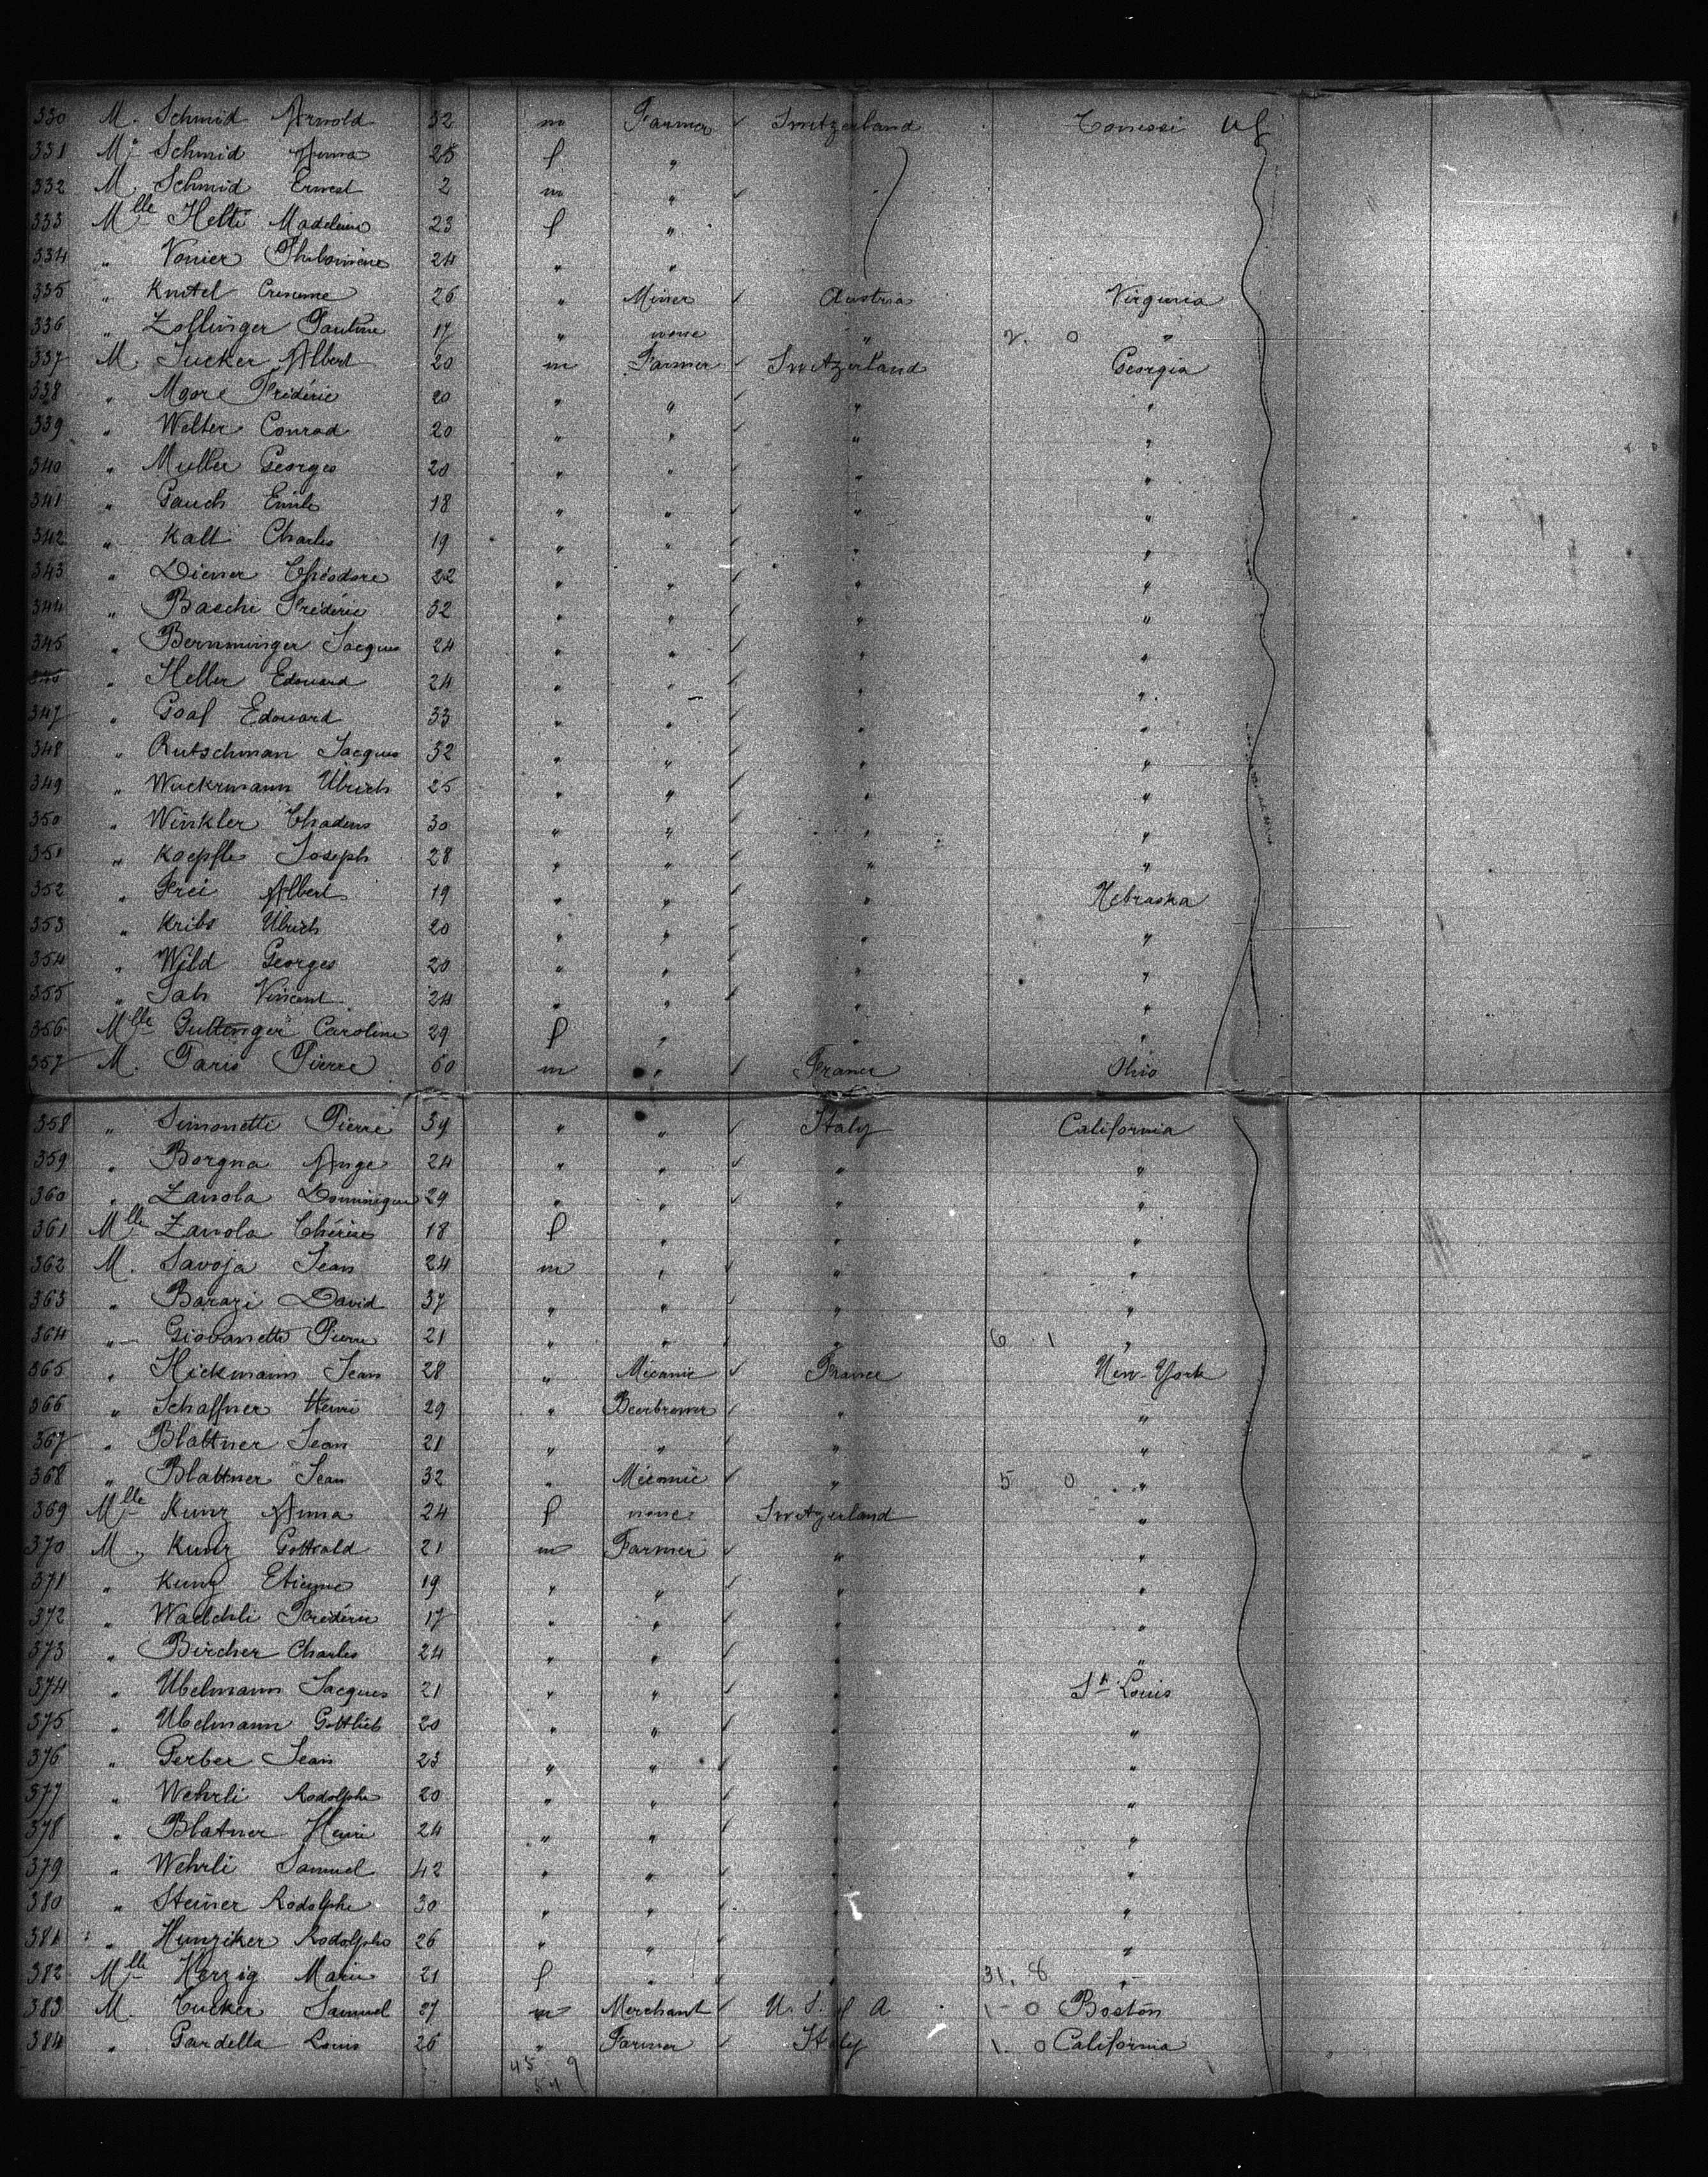 330 M. Schmid Arnold 32 m Farmer ✓ Switzerland Tenessi
331 Me Schmid Anna 25 f "
332 M. Schmid Ernest 2 m " ✓
333 Mlle Helti Madeleine 23 f "
334 " Vonier Philomène 24 " "
335 " Knitel 26 " Miner ✓ Austria Virginia
336 " Zollinger Pauline 17 " none " 2. 0 "
337 M. Sucker Albert 20 m Farmer ✓ Switzerland Georgia
338 " Moore Fridéric 20 " " ✓ " "
339 " Welter Conrad 20 " " ✓ " "
340 " Muller Georges 20 " " ✓ " "
341 " Gauch Emile 18 " " ✓ " "
342 " Kalt Charles 19 " " ✓ " "
343 " Diener Théodore 22 " " ✓ " "
344 " Baschi Fridéric 32 " " ✓ " "
345 " Bernminger Jacques 24 " " ✓ " "
346 " Heller Edouard 24 " " ✓ " "
347 " Goaf Edouard 33 " " ✓ " "
348 " Rutschman Jacques 32 " " ✓ " "
349 " Wuckrmann Ulrich 25 " " ✓ " "
350 " Winkler Thadeus 30 " " ✓ " "
351 " Koepfle Joseph 28 " " ✓ " "
352 " Frei Albert 19 " " ✓ " Nebraska
353 " Kribs Ulrich 20 " " ✓ " "
354 " Wild Georges 20 " " ✓ " "
355 " Jah Vincent 24 " " ✓ " "
356 Mlle Guttinger Caroline 29 f " " "
357 M. Paris Pierre 60 m " ✓ France Ohio
358 " Simonetti Pierre 39 " " ✓ Italy California
359 " Borgna Ange 24 " " ✓ " "
360 " Zanola Dominique 29 " " ✓ " "
361 Mlle Zanola Thérèse 18 f " " "
362 M. Savoja Jean 24 m " ✓ " "
363 " Barazi David 37 " " ✓ " "
364 " Giovanetti Pierre 21 " " ✓ " 6 1 "
365 " Hickmann Jean 28 " Mécanic ✓ France New-York
366 " Schaffner Henri 29 " Beerbrewer ✓ " "
367 " Blattner Jean 21 " " ✓ " "
368 " Blattner Jean 32 " Mécanic ✓ " 5 0 "
369 Mlle Kunz Anna 24 f none Switzerland "
370 M. Kunz Gottvald 21 m Farmer ✓ " "
371 " Kunz Etienne 19 " " ✓ " "
372 " Waelchli Frédéric 17 " " ✓ " "
373 " Bircher Charles 24 " " ✓ " "
374 " Ubelmann Jacques 21 " " ✓ " St Louis
375 " Ubelmann Gottlieb 20 " " ✓ " "
376 " Gerber Jean 23 " " ✓ " "
377 " Wehrli Rodolphe 20 " " ✓ " "
378 " Blatner Henri 24 " " ✓ " "
379 " Wehrli Samuel 42 " " ✓ " "
380 " Steiner Rodolphe 30 " " ✓ " "
381 " Hunziker Rodolphe 26 " " ✓ " "
382 Mlle Herzig Marie 21 f " ✓ " 31. 8 "
383 M. Tucker Samuel 27 m Merchant ✓ U. S. of A 1 - 0 Boston
384 " Gardella Louis 26 " Farmer ✓ Italy 1. 0 California
45 9
54